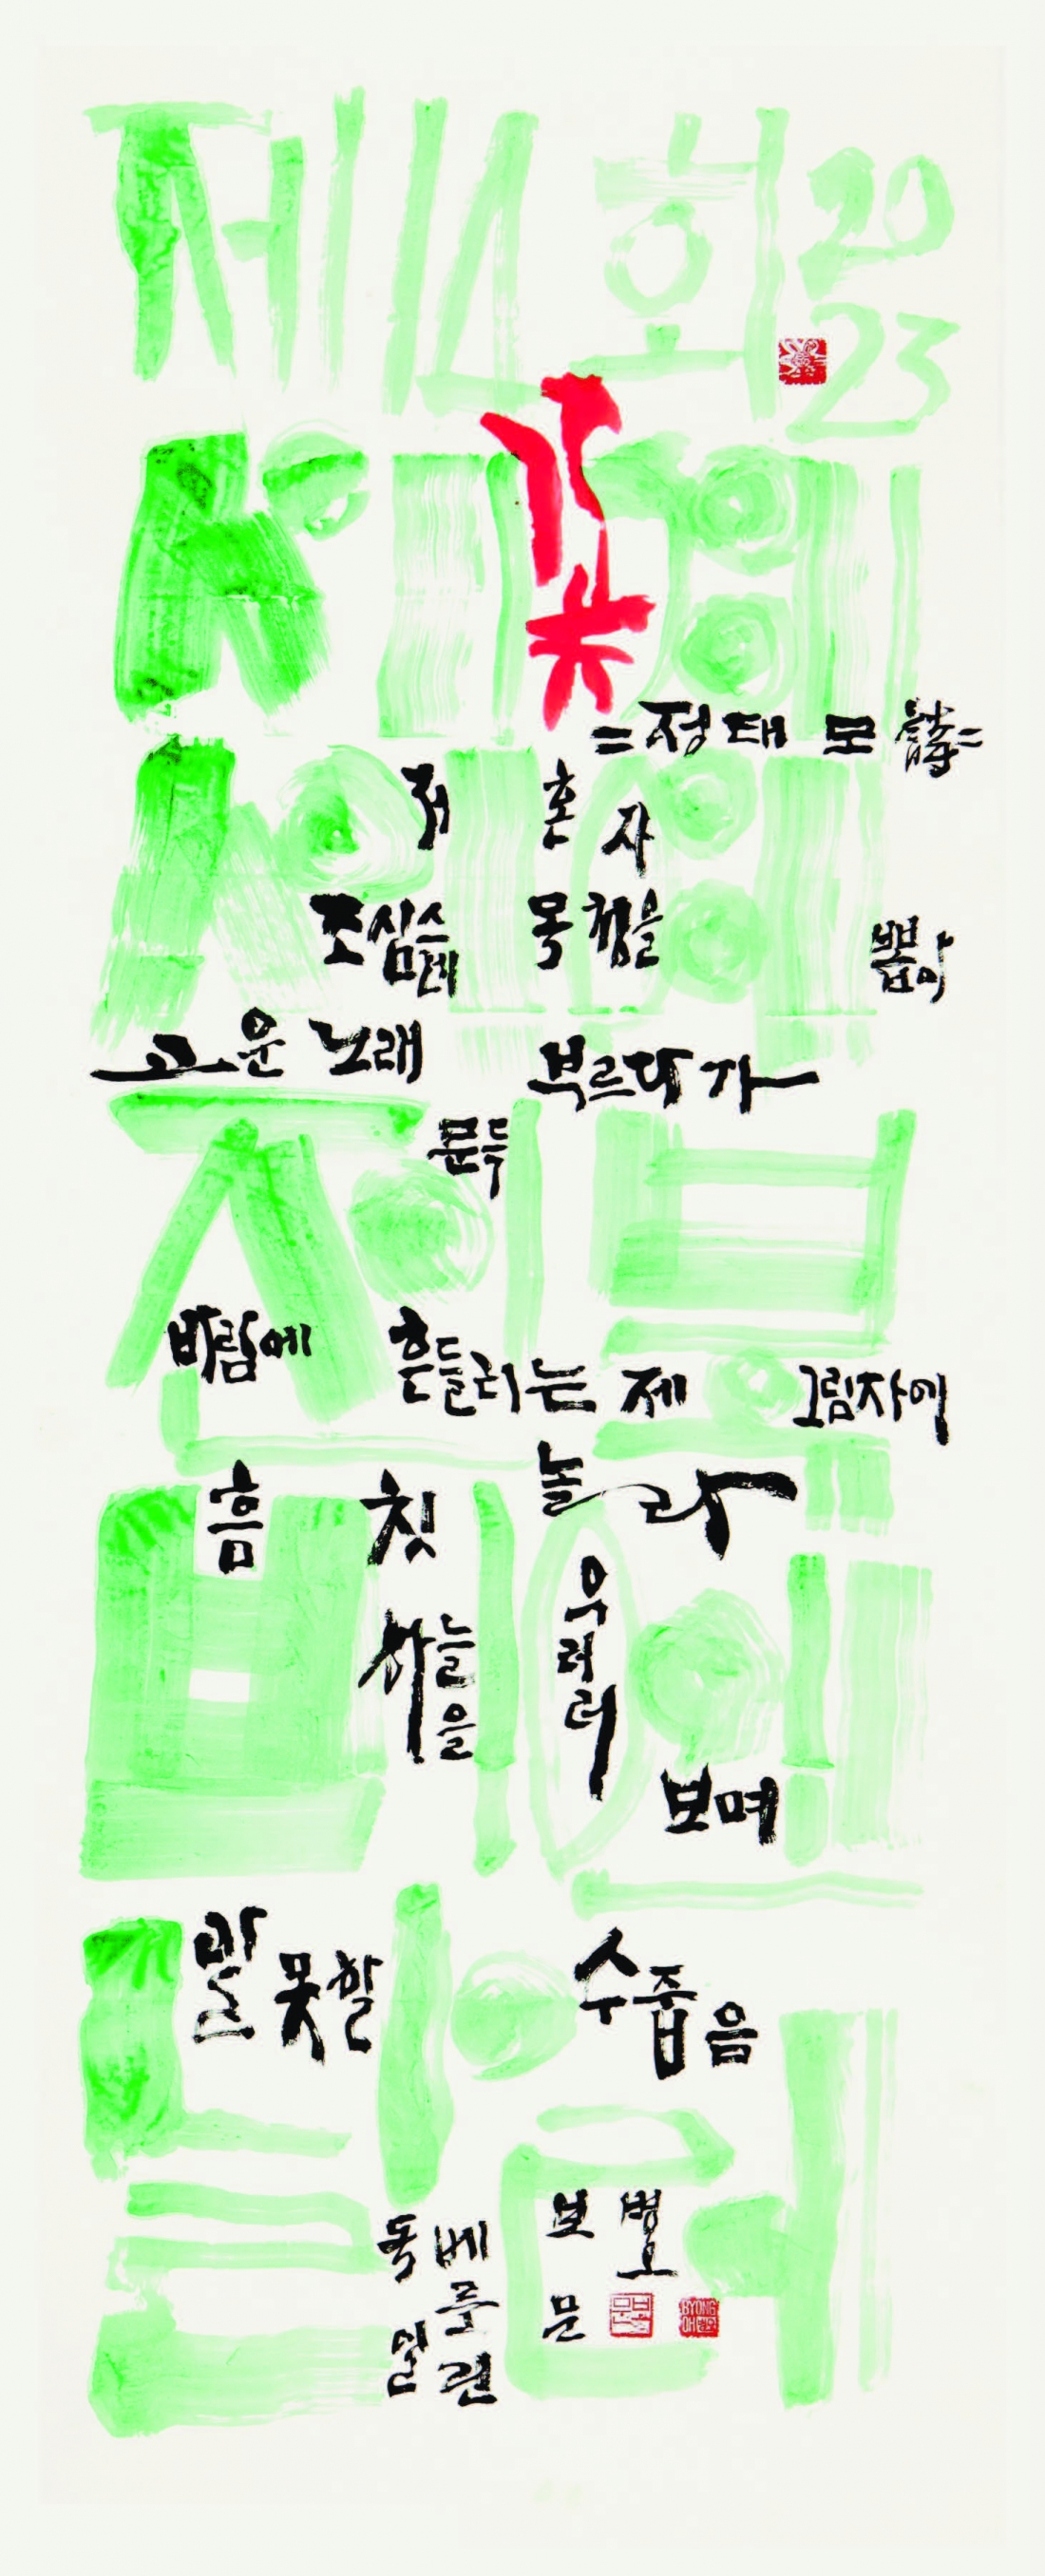 제14회 2023
세계
서예
전북
비엔
날레
꽃
= 정태모 詩 =
저 혼자
조심스레 목청을 뽑아
고운 노래 부르다가
문득
바람에 흔들리는 제 그림자에
흠칫 놀라
하늘을 우러러
보며
말 못할 수줍음
독일 베를린 보문 병오